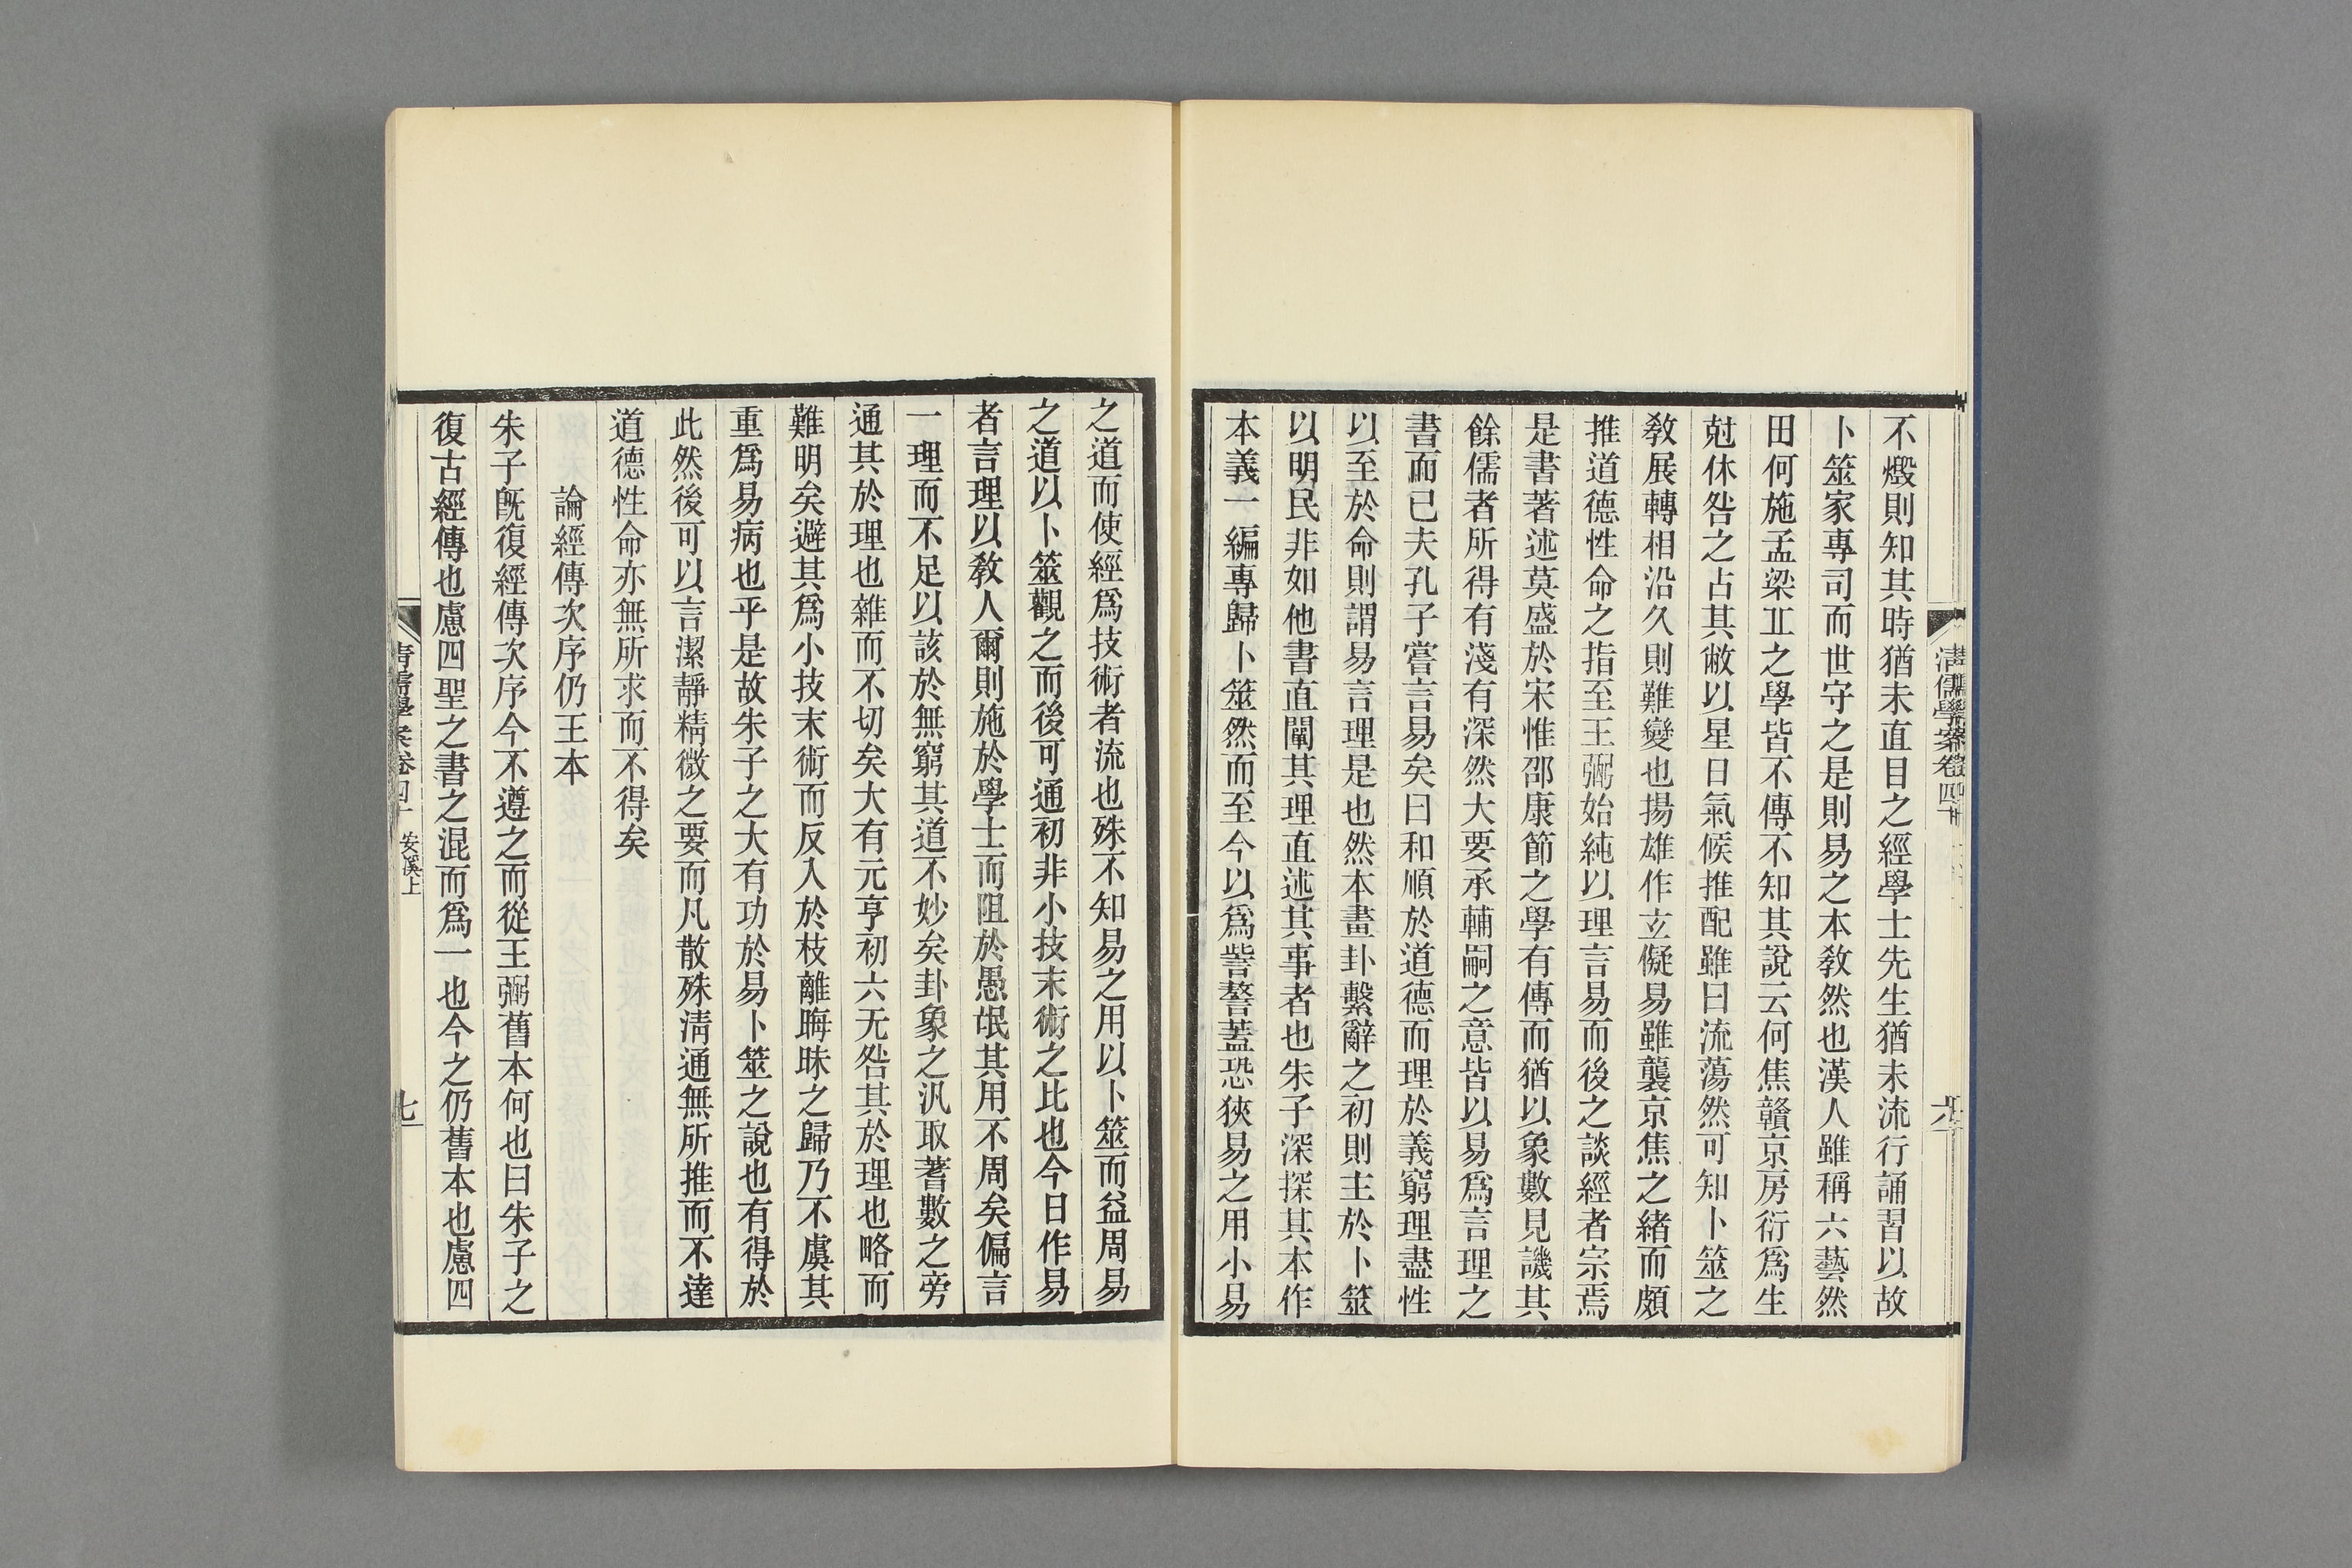 不燬則知其時猶未直目之經學士先生猶未流行誦習以故
卜筮家專司而世守之是則易之本敎然也漢人雖稱六藝然
田何施孟梁丘之學皆不傳不知其說云何焦贛京房衍爲生
尅休咎之占其敝以星日氣候推配雖曰流蕩然可知卜筮之
敎展轉相沿久則難變也揚雄作玄儗易雖襲京焦之緒而頗
推道德性命之指至王弼始純以理言易而後之談經者宗焉
是書著述莫盛於宋惟邵康節之學有傳而猶以象數見譏其
餘儒者所得有淺有深然大要承輔嗣之意皆以易爲言理之
書而已夫孔子嘗言易矣曰和順於道德而理於義窮理盡性
以至於命則謂易言理是也然本畫卦繫辭之初則主於卜筮
以明民非如他書直闡其理直述其事者也朱子深探其本作
本義一編專歸卜筮然而至今以爲訾謷蓋恐狹易之用小易
之道而使經爲技術者流也殊不知易之用以卜筮而益周易
之道以卜筮觀之而後可通初非小技末術之比也今日作易
者言理以敎人爾則施於學士而阻於愚氓其用不周矣偏言
一理而不足以該於無窮其道不妙矣卦象之汎取蓍數之旁
通其於理也雜而不切矣大有元亨初六无咎其於理也略而
難明矣避其爲小技末術而反入於枝離晦昧之歸乃不虞其
重爲易病也乎是故朱子之大有功於易卜筮之說也有得於
此然後可以言潔靜精微之要而凡散殊淸通無所推而不達
道德性命亦無所求而不得矣
論經傳次序仍王本
朱子旣復經傳次序今不遵之而從王弼舊本何也曰朱子之
復古經傳也慮四聖之書之混而爲一也今之仍舊本也慮四
淸儒學案卷四十
安溪上
七